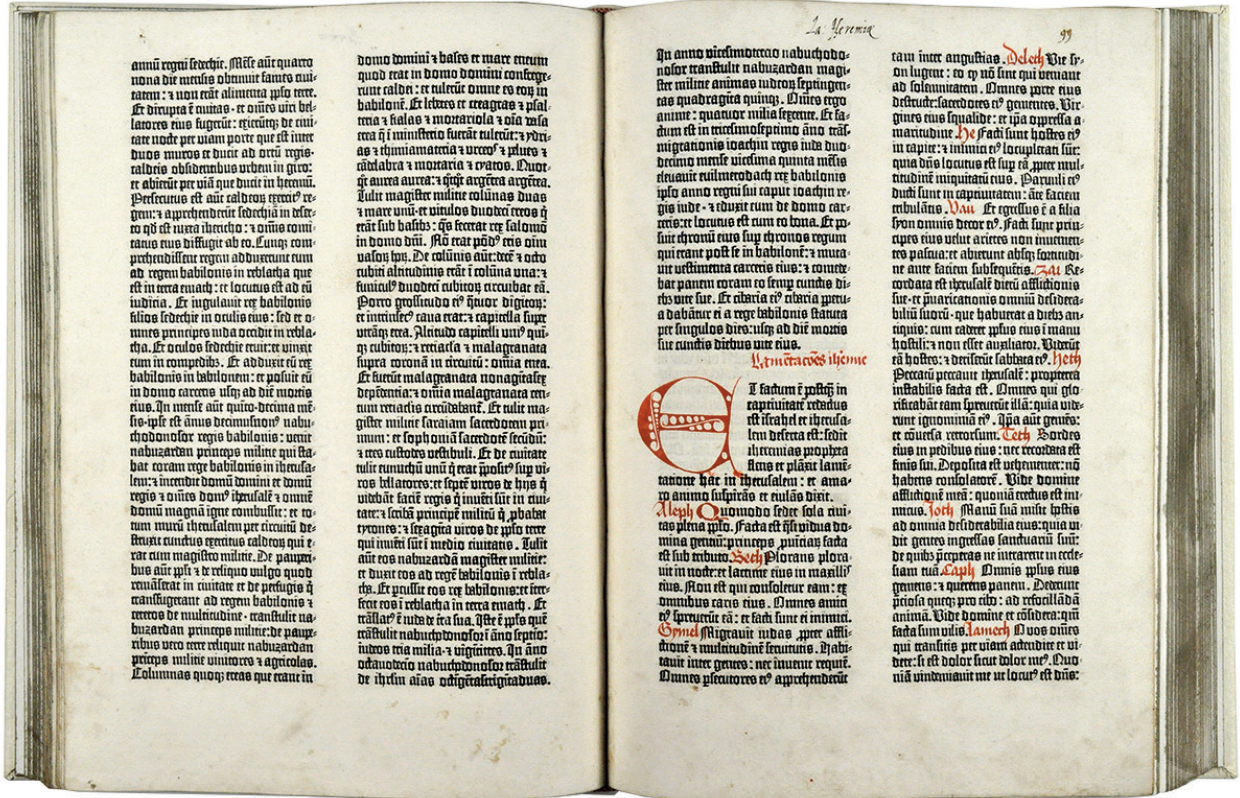 annū regni sedechie. Mēse aūt quarto
nona die mensis obtinuit fames ciui-
tatem: ⁊ non erāt alimenta pplo terre.
Et dirupta ē ciuitas · et oīnes viri bel-
latores eius fugerūt: exierūtqȝ de ciui-
tate nocte per viam porte que est inter
duos muros et ducit ad ortū regis·
caldeis obsidentibus vrbem in giro:
et abierūt per viā que ducit in heremū.
Persecutus est aūt caldeorȝ exercitꝰ re-
gem: ⁊ apprehenderūt sedechiā in deser-
to qd est iuxta iherícho: ⁊ oīnis comi-
tatus eius diffugit ab eo. Cunqȝ com-
prehendissent regem adduxerunt eum
ad regem babilonis in reblatha que
est in terra emath: et locutus est ad eū
iudicia. Et iugulauit rex babilonis
filios sedechie in oculis eius: sed et o-
mnes principes iuda occidit in rebla-
tha. Et oculos sedechie eruit: et vinxit
eum in compedibȝ. Et adduxit eū rex
babilonis in babilonem: et posuit eū
in domo carceris usqȝ ad diē mortis
eius. In mense aūt quīto·decima mē-
sis·ipse est annus decimusnonꝰ nabu-
chodonosor regis babilonis: venit
nabuzardan princeps militie qui sta-
bat coram rege babilonis in iherusa-
lem: ⁊ incendit domū domini et domū
regis ⁊ oīnes domꝰ iherusalē ⁊ omnē
domū magnā igne combussit: et to-
tum murū iherusalem per circuitū de-
struxit cunctus exercitus caldeorȝ qui e-
rat cum magistro militie. De pauperi-
bus aūt ppli ⁊ de reliquo vulgo quod
remāserat in ciuitate et de perfugis q̄
transfugerant ad regem babilonis ⁊
ceteros de multitudine · transtulit na-
buzardan princeps militie: de paupe-
ribus vero terre reliquit nabuzardan
prīceps militie vinitores ⁊ agricolas.
Columnas quoqȝ ereas que erant in
domo domini ⁊ bases et mare eneum
quod erat in domo domini confrege-
runt caldei: et tulerūt omne es eorȝ in
babilonē. Et lebetes et creagras ⁊ psal-
teria ⁊ fialas ⁊ mortariola ⁊ oīa vasa
erea q̄ ī ministerio fuerāt tulerūt: ⁊ ydri-
as ⁊ thimiamateria ⁊ vrceoꝰ ⁊ pelues ⁊
cādelabra ⁊ mortaria ⁊ cyatos. Quot-
qȝ aurea aurea: ⁊ q̄tqȝ argētea argētea.
Tulit magister militie colūnas duas
⁊ mare unū et vitulos duodecī ereos q̄
erāt sub basibȝ: q̄s fecerat rex salomō
in domo dñi. Nō erat pōdꝰ eris oīm
vasorȝ horȝ. De colūnis aūt: decē ⁊ octo
cubiti altitudinis erāt ī colūna una: ⁊
funiculꝰ duodecī cubitorȝ circuibat eā.
Porro grossitudo eiꝰ q̄tuor digitorȝ:
et intrinsecꝰ caua erat: ⁊ capitella super
utrāqȝ erea. Altitudo capitelli uniꝰ quī-
qȝ cubitorȝ: ⁊ retiacla ⁊ malagranata
supra coronā in circuitū: omīa enea.
Et fuerūt malagranata nonagīta sex
depēdentia: ⁊ omīa malagranata cen-
tum retiaclis circūdabant. Et tulit ma-
gister militie saraiam sacerdotem pri-
mum: et sophoniā sacerdotē secūdū:
⁊ tres custodes vestibuli. Et de ciuitate
tulit eunuchū unū q̄ erat ppositꝰ sup vi-
ros bellatores: et septē viros de hijs q̄
videbāt faciē regis q̄ inuēti sūt in ciui-
tate: ⁊ scribā principē militū q̄ pbabat
tyrones: ⁊ sexagīta viros de pplo terre
qui inuēti sūt ī medio ciuitatis. Tulit
aūt eos nabuzardā magister militie:
et duxit eos ad regē babilonis ī rebla-
tha. Et pcussit eos rex babilonis: et īter-
fecit eos ī reblatha in terra emath. Et
trāslatꝰ ē iuda de tra sua. Iste ē pplus quē
trāstulit nabuchodonosor: ī āno septīo:
iudeos tria milia· ⁊ vigīti tres. In āno
octauodecīo nabuchodonosor trāstulit
de ihrlm aīas octīgētas trigīta duas.
La: Ieremia
99
In anno vicesimotercio nabuchodo-
nosor transtulit nabuzardan magi-
ster militie animas iudeorȝ septingen-
tas quadragīta quinqȝ. Oīnes ergo
anime: quatuor milia sexcente. Et fa-
ctum est in tricesimoseptimo āno trās-
migrationis ioachin regis iuda·duo-
decimo mense vicesima quinta mēsis
eleuauit euilmerodach rex babilonis
ipso anno regni sui caput ioachin re-
gis iude · ⁊ eduxit eum de domo car-
ceris: et locutus est cum eo bona. Et po-
suit thronū eius sup thronos regum
qui erant post se in babilonē: ⁊ muta-
uit vestimenta carceris eius: ⁊ comede-
bat panem coram eo semp cunctis di-
ebȝ vite sue. Et cibaria eiꝰ cibaria ppetu-
a dabātur ei a rege babilonis statuta
per singulos dies: usqȝ ad diē mortis
sue cunctis diebus vite eius.
Lamētacōes iheremie
ET factum ē postqȝ in
captiuitatē redactus
est israhel et iherusa-
lem deserta est: sedit
iheremias propheta
flens et plāxit lamē-
tatione hāc in iherusalem: et ama-
ro animo suspirās et eiulās dixit.
Aleph Quomodo sedet sola ciui-
tas plena pplo. Facta est q̄si vidua do-
mina gentiū: princeps puinciarȝ facta
est sub tributo. Beth Plorans plora-
uit in nocte: et lacrime eius in maxillꝭ
eius. Non est qui consoletur eam: ex
omnibus caris eius. Omnes amici
eiꝰ spreuerūt eā: et facti sunt ei inimici.
Gymel Migrauit iudas ppter affli-
ctionē ⁊ multitudinē seruitutis. Habi-
tauit inter gentes: nec inuenit requiē.
Omnes psecutores eiꝰ apprehenderūt
eam inter angustias. Deleth Vie sy-
on lugent: eo qȝ nō sint qui veniant
ad solennitatem. Omnes porte eius
destructe: sacerdotes eiꝰ gementes. Vir-
gines eius squalide: et ipa oppressa a-
maritudine. He Facti sunt hostes eiꝰ
in capite: ⁊ inimici eiꝰ locupletati sūt:
quia dñs locutus est sup eā ppter mul-
titudinē iniquitatū eius. Paruuli eiꝰ
ducti sunt in captiuitatem: āte faciem
tribulātis. Vau Et egressus ē a filia
syon omnis decor eiꝰ. Facti sunt prin-
cipes eius velut arietes non inuenien-
tes pascua: et abierunt absqȝ fortitudi-
ne ante faciem subsequētis. Zai Re-
cordata est iherusalē dierū afflictionis
sue·et preuaricationis omniū desidera-
biliū suorū· que habuerat a diebȝ an-
tiquis: cum caderet pplus eius ī manu
hostili: ⁊ non esset auxiliator. Viderūt
eā hostes: ⁊ deriserūt sabbata eiꝰ. Heth
Peccatū peccauit iherusalē: propterea
instabilis facta est. Omnes qui glo-
rificabāt eam spreuerūt illā: quia vide-
runt ignominiā eiꝰ. Ipa aūt gemēs:
et cōuersa retrorsum. Teth Sordes
eius in pedibus eius: nec recordata est
finis sui. Deposita est vehementer: nō
habens consolatorē. Vide domine
afflictionē meā: quoniā erectus est ini-
micus. Joth Manū suā misit hostis
ad omnia desiderabilia eius: quia vi-
dit gentes ingressas sanctuariū suū:
de quibȝ preceperas ne intrarent in eccle-
siam tuā. Caph Omnis pplus eius
gemens: ⁊ querens panem. Dederunt
preciosa queqȝ pro cibo: ad refocillādā
animā. Vide domine et cōsidera: qm
facta sum vilis. Lamech O vos oīnes
qui transitis per viam attendite et vi-
dete: si est dolor sicut dolor meꝰ. Quo-
niā vindemiauit me ut locutꝰ est dñs: